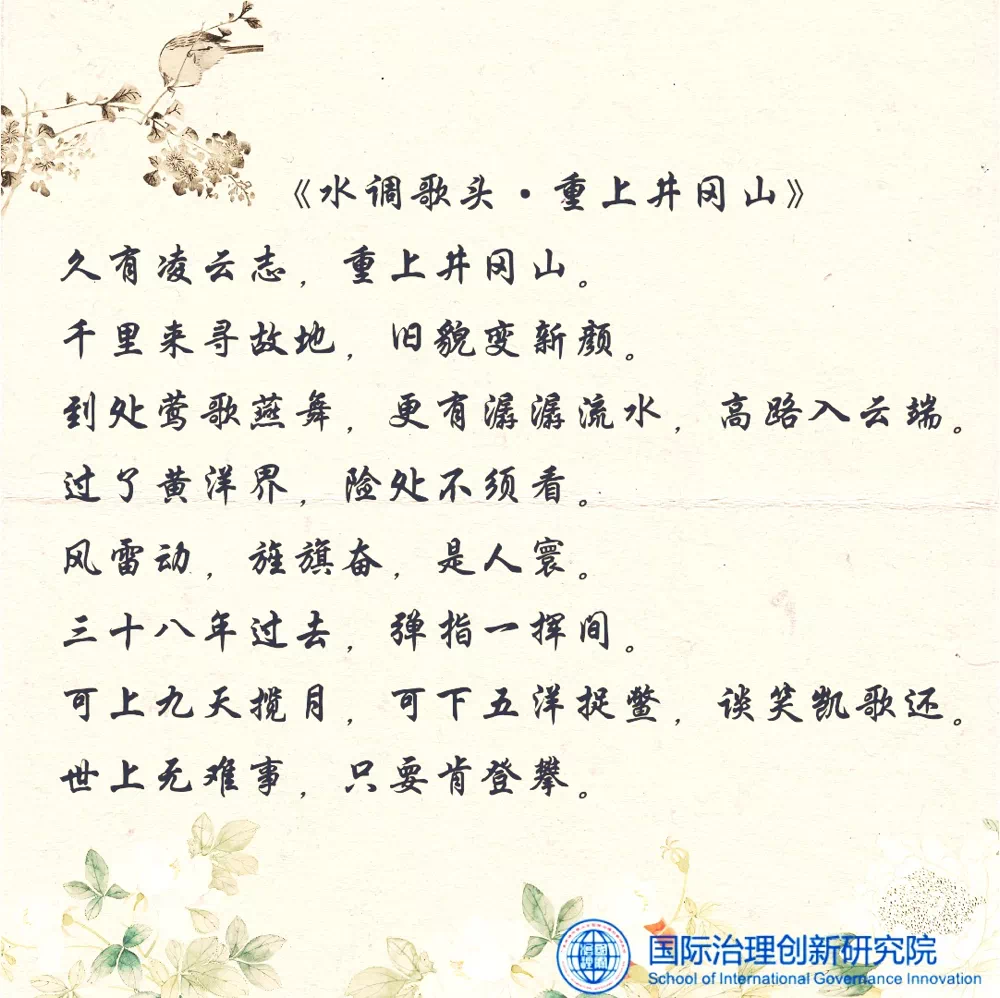 《水调歌头·重上井冈山》
久有凌云志，重上井冈山。
千里来寻故地，旧貌变新颜。
到处莺歌燕舞，更有潺潺流水，高路入云端。
过了黄洋界，险处不须看。
风雷动，旌旗奋，是人寰。
三十八年过去，弹指一挥间。
可上九天揽月，可下五洋捉鳖，谈笑凯歌还。
世上无难事，只要肯登攀。
国际治理创新研究院
School of International Governance Innovation